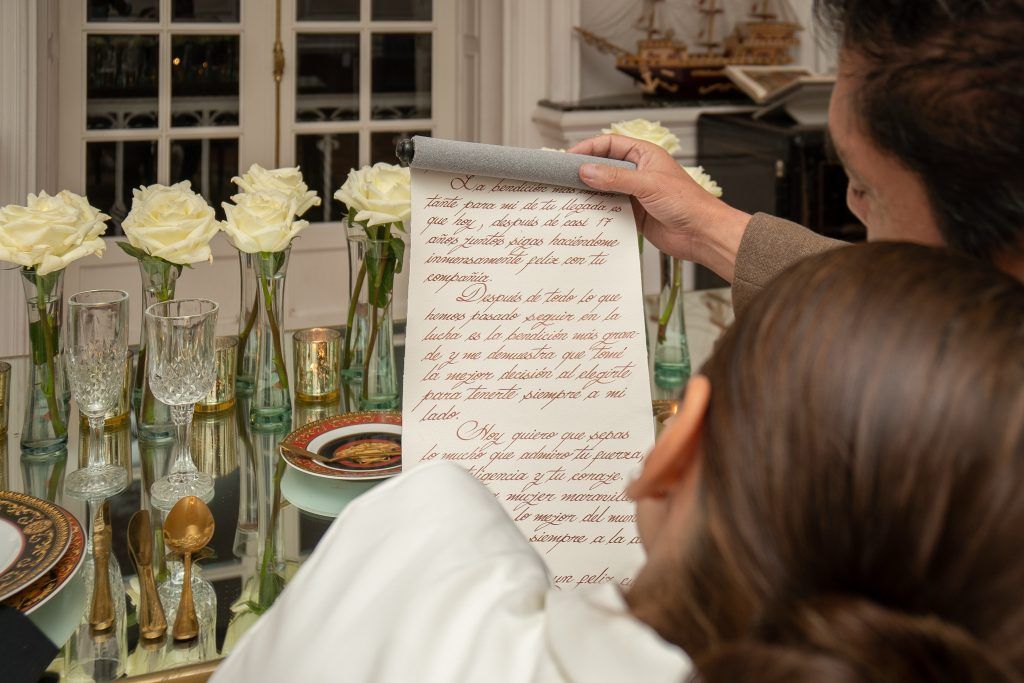 La bendición más
tante para mi de tu llegada es
que hoy, después de casi 17
años juntos sigas haciéndome
inmensamente feliz con tu
compañía.
Después de todo lo que
hemos pasado seguir en la
lucha es la bendición más gran-
de y me demuestra que tomé
la mejor decisión al elegirte
para tenerte siempre a mi
lado.
Hoy quiero que sepas
lo mucho que admiro tu fuerza,
teligencia y tu coraje.
mujer maravill
lo mejor del mun
siempre a la
un feliz